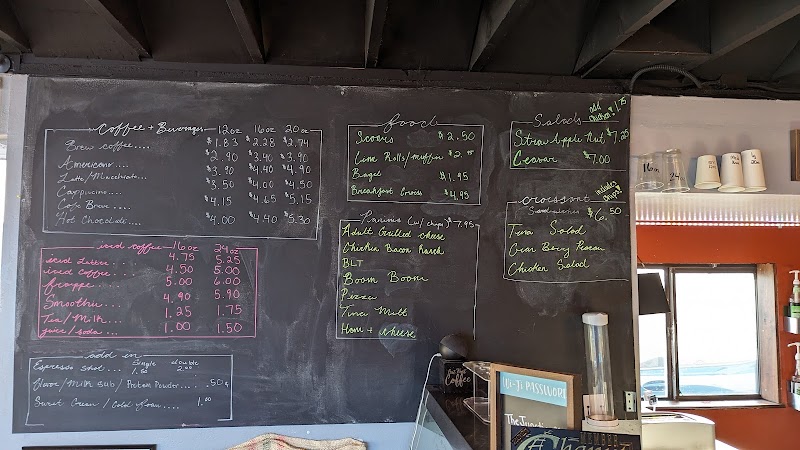 Coffee + Beverages 12oz 16oz 20oz
Brew coffee.... $1.83 $2.28 $2.74
Americano.... $2.90 $3.40 $3.90
Latte/Macchiato... $3.90 $4.40 $4.90
Cappucino.... $3.50 $4.00 $4.50
Cafe Breve.... $4.15 $4.65 $5.15
Hot Chocolate.... $4.00 $4.40 $5.30
iced coffee 16oz 24oz
iced Latte... 4.75 5.25
iced coffee... 4.50 5.00
frappe... 5.00 6.00
Smoothie... 4.90 5.90
Tea/Milk... 1.25 1.75
juice/soda... 1.00 1.50
add in
Single double
Espresso shot... 1.50 2.00
Flavor/Milk Sub/Protein Powder.... .50¢
Sweet Cream/Cold Foam.... 1.00
food
Scones $2.50
Bagel $1.95
Breakfast Croiss $4.95
Paninis (w/ chips) $7.95
Adult Grilled cheese
Chicken Bacon Ranch
BLT
Boom Boom
Pizza
Tuna Melt
Ham + cheese
Salads add chicken $1.75
Straw Apple Nut $7.25
Ceasar $7.00
Croissant includes chips
Sandwiches $6.50
Tuna Salad
Chicken Salad
16oz
24
But First
Coffee
Wi-Fi PASSWORD